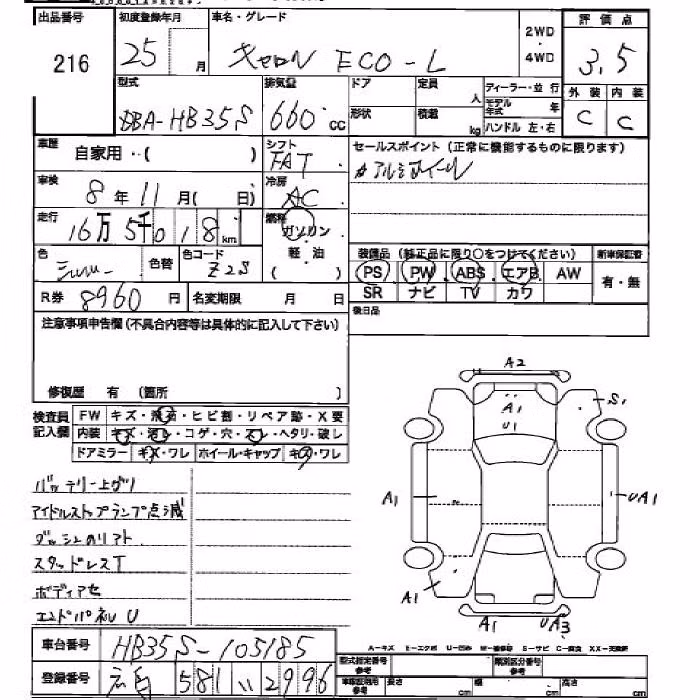 出品番号
216
初度登録年月
25 月
車名・グレード
キャロル ECO-L
2WD
・
4WD
評価点
3.5
外装 内装
C C
型式
DBA-HB35S
排気量
660 cc
ドア
形状
定員
人
積載
kg
ディーラー・並行
モデル年式 年
ハンドル 左・右
車歴
自家用・( )
シフト
FAT
セールスポイント(正常に機能するものに限ります)
アルミホイール
車検
8年11月( 日)
冷房
AC
走行
16万5千018km
燃料
ガソリン
軽油
( )
色
シルバー
色替
色コード
Z2S
装備品(純正品に限り○をつけてください)
PS PW ABS エアB AW
SR ナビ TV カワ
新車保証書
有・無
R券 8960円
名変期限 月 日
後日品
注意事項申告欄(不具合内容等は具体的に記入して下さい)
修復歴 有(箇所 )
検査員
記入欄
FW キズ・飛石・ヒビ割・リペア跡・X要
内装 キズ・汚レ・コゲ・穴・スレ・ヘタリ・破レ
ドアミラー キズ・ワレ ホイール・キャップ キズ・ワレ
バッテリー上ガリ
アイドルストップランプ点滅
ダッシュのリアト
スタッドレスT
ボディアセ
エンドパネルU
A2
A1
U1
S1
A1
UA1
A1
A1
UA3
A=キズ E=エクボ U=凹み W=補修跡 S=サビ C=腐食 XX=交換済
車台番号
HB35S-105185
登録番号
581 い 2996
型式指定番号
参考
類別区分番号
参考
車庫証明用
参考
長さ cm 幅 cm 高さ cm